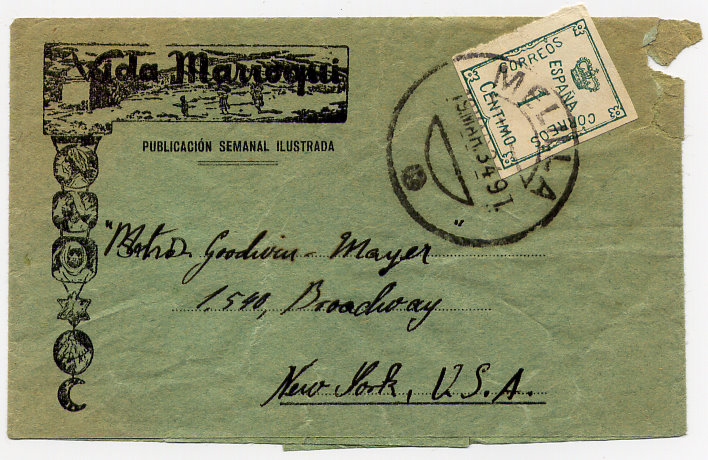 Vida Marroqui
PUBLICACIÓN SEMANAL ILUSTRADA
CORREOS
ESPAÑA
1
CENTIMO
CORREOS
MELILLA
"Metro Goodwin-Mayer"
1540, Broadway
New York, U.S.A.